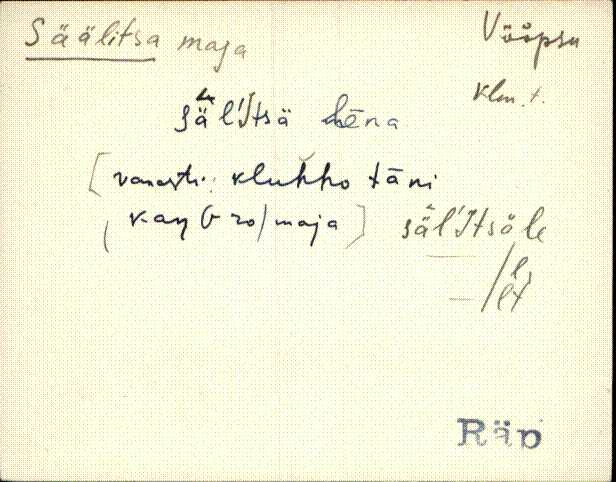 Säälitsa maja
Vööpsu
klm. t.
säl'Itsä hēna
[vanasti: klukko tāni
(kanGro/maja)]
säl'Itsäle
— /l
— /lt
Räp